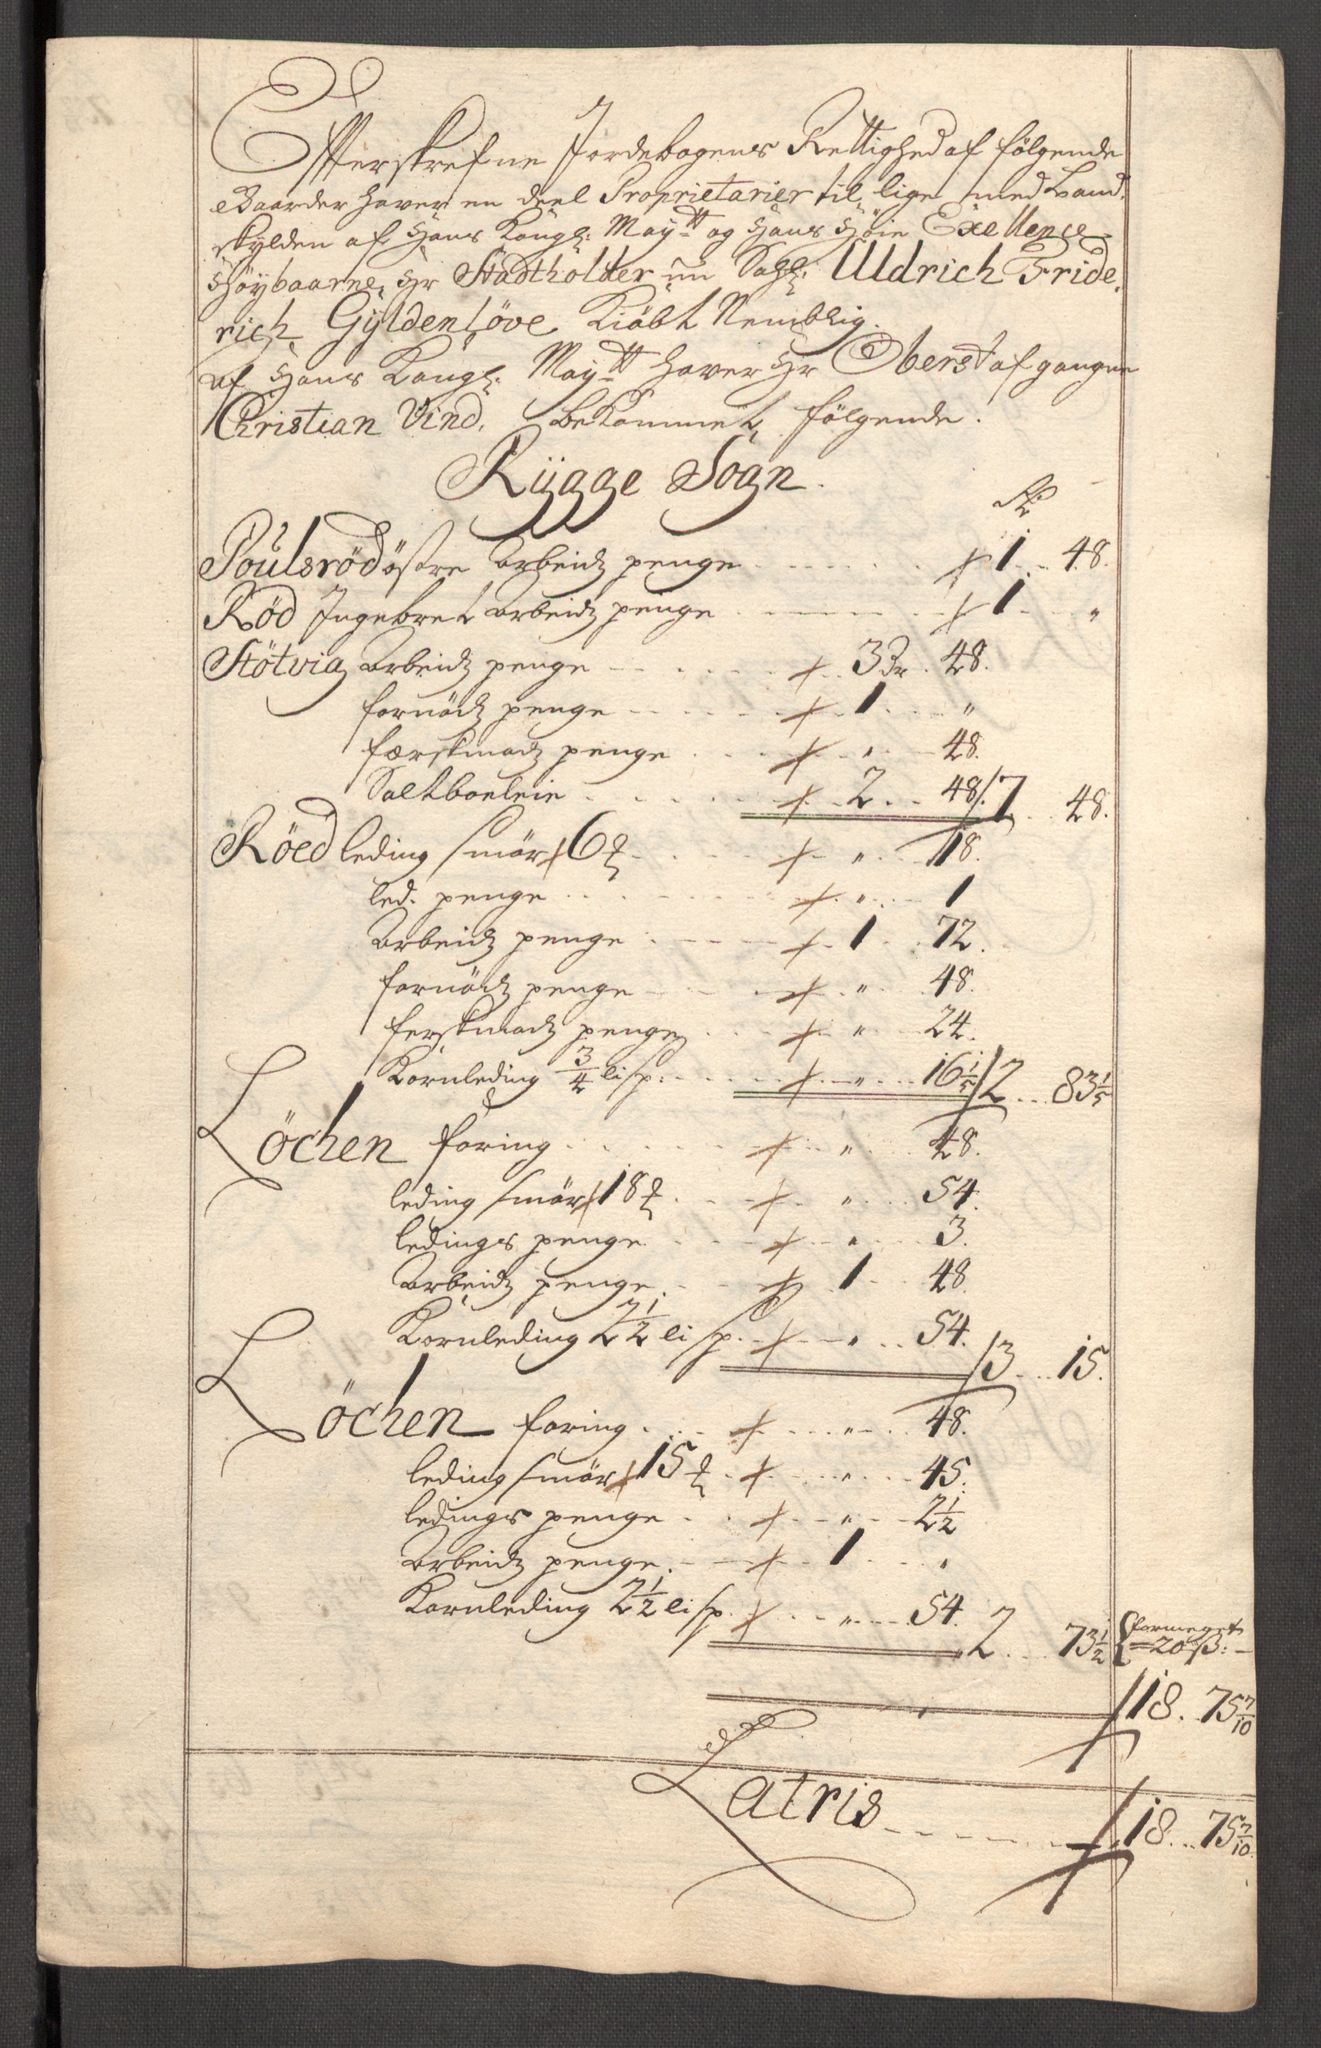 Efterskrefne Jordebogens Rettighed af følgende
Gaarder haver en deel Proprietarier til lige med Land,
skylden af Hans Kongl: May.tt og Hans Høie Exellence
Høybaarne Hr Stadtholder nu Sahl: Uldrich Fride,
rich Gyldenløve Kiøbt Nemblig.
af Hans Kongl: May.tt haver Hr Oberst afgangne
Christian Vind, bekommet følgende.
Rÿgge Sogn.
Poulsröd östre Arbeidz penge 1 48.
Röd Ingebret Arbeidz penge 1 "
Stötvig Arbeidz penge 3 Dr 48.
fornödz penge 1 "
færskmadz penge " 48.
Saltboeleie 2 48 / 7 48.
Röed leding smör 6 " 18.
led. penge " 1
Arbeidz penge 1 72.
fornödz penge " 48.
ferskmadz penge " 24.
Kornleding 3/4 lisp: " 16 1/5 / 2 83 1/5
Löchen foring " 48.
leding smör 18 " 54.
ledings penge " 3.
Arbeidz penge 1 48.
Kornleding 2 1/2 lisp. " 54. / 3 15.
Löchen foring " 48.
leding smör 15 " 45.
ledings penge " 2 1/2
Arbeidz penge 1 "
Kornleding 2 1/2 lisp. " 54. 2 73 1/2 formeget
20 ß:
18. 75 7/10
Latris 18 75 7/10